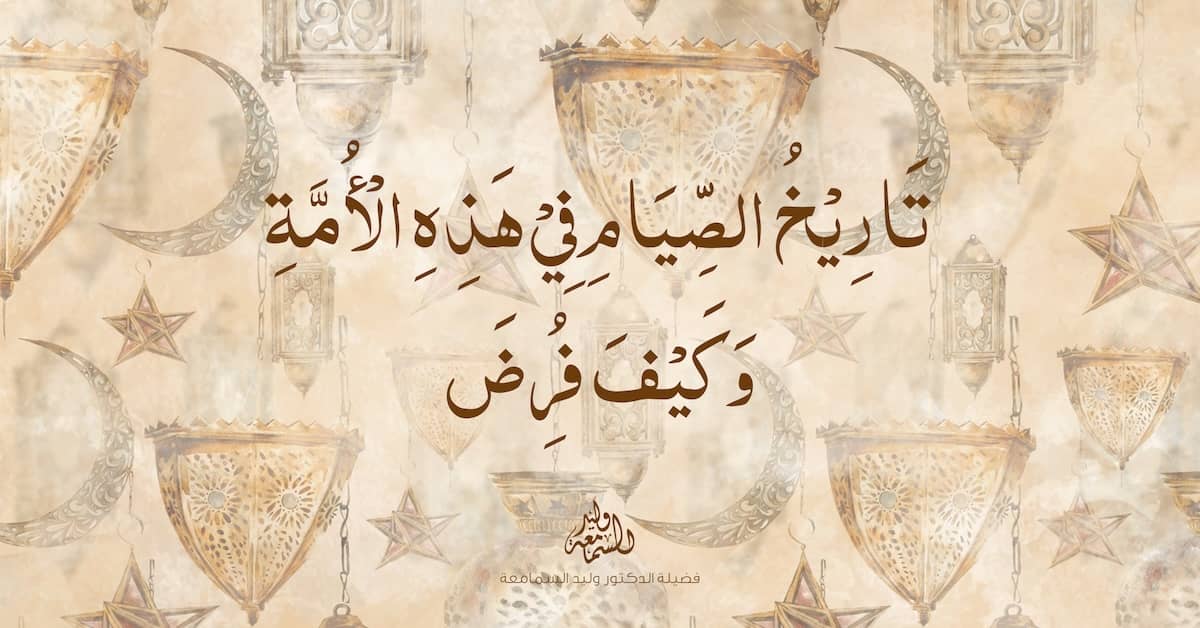 تَارِيْخُ الصِّيَامِ فِيْ هَذِهِ الْأُمَّةِ
وَكَيْفَ فُرِضَ
وليد السمامعة
فضيلة الدكتور وليد السمامعة